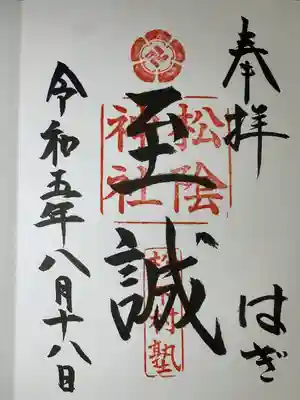 奉拝
はぎ
松陰神社
至誠
松下村塾
令和五年八月十八日